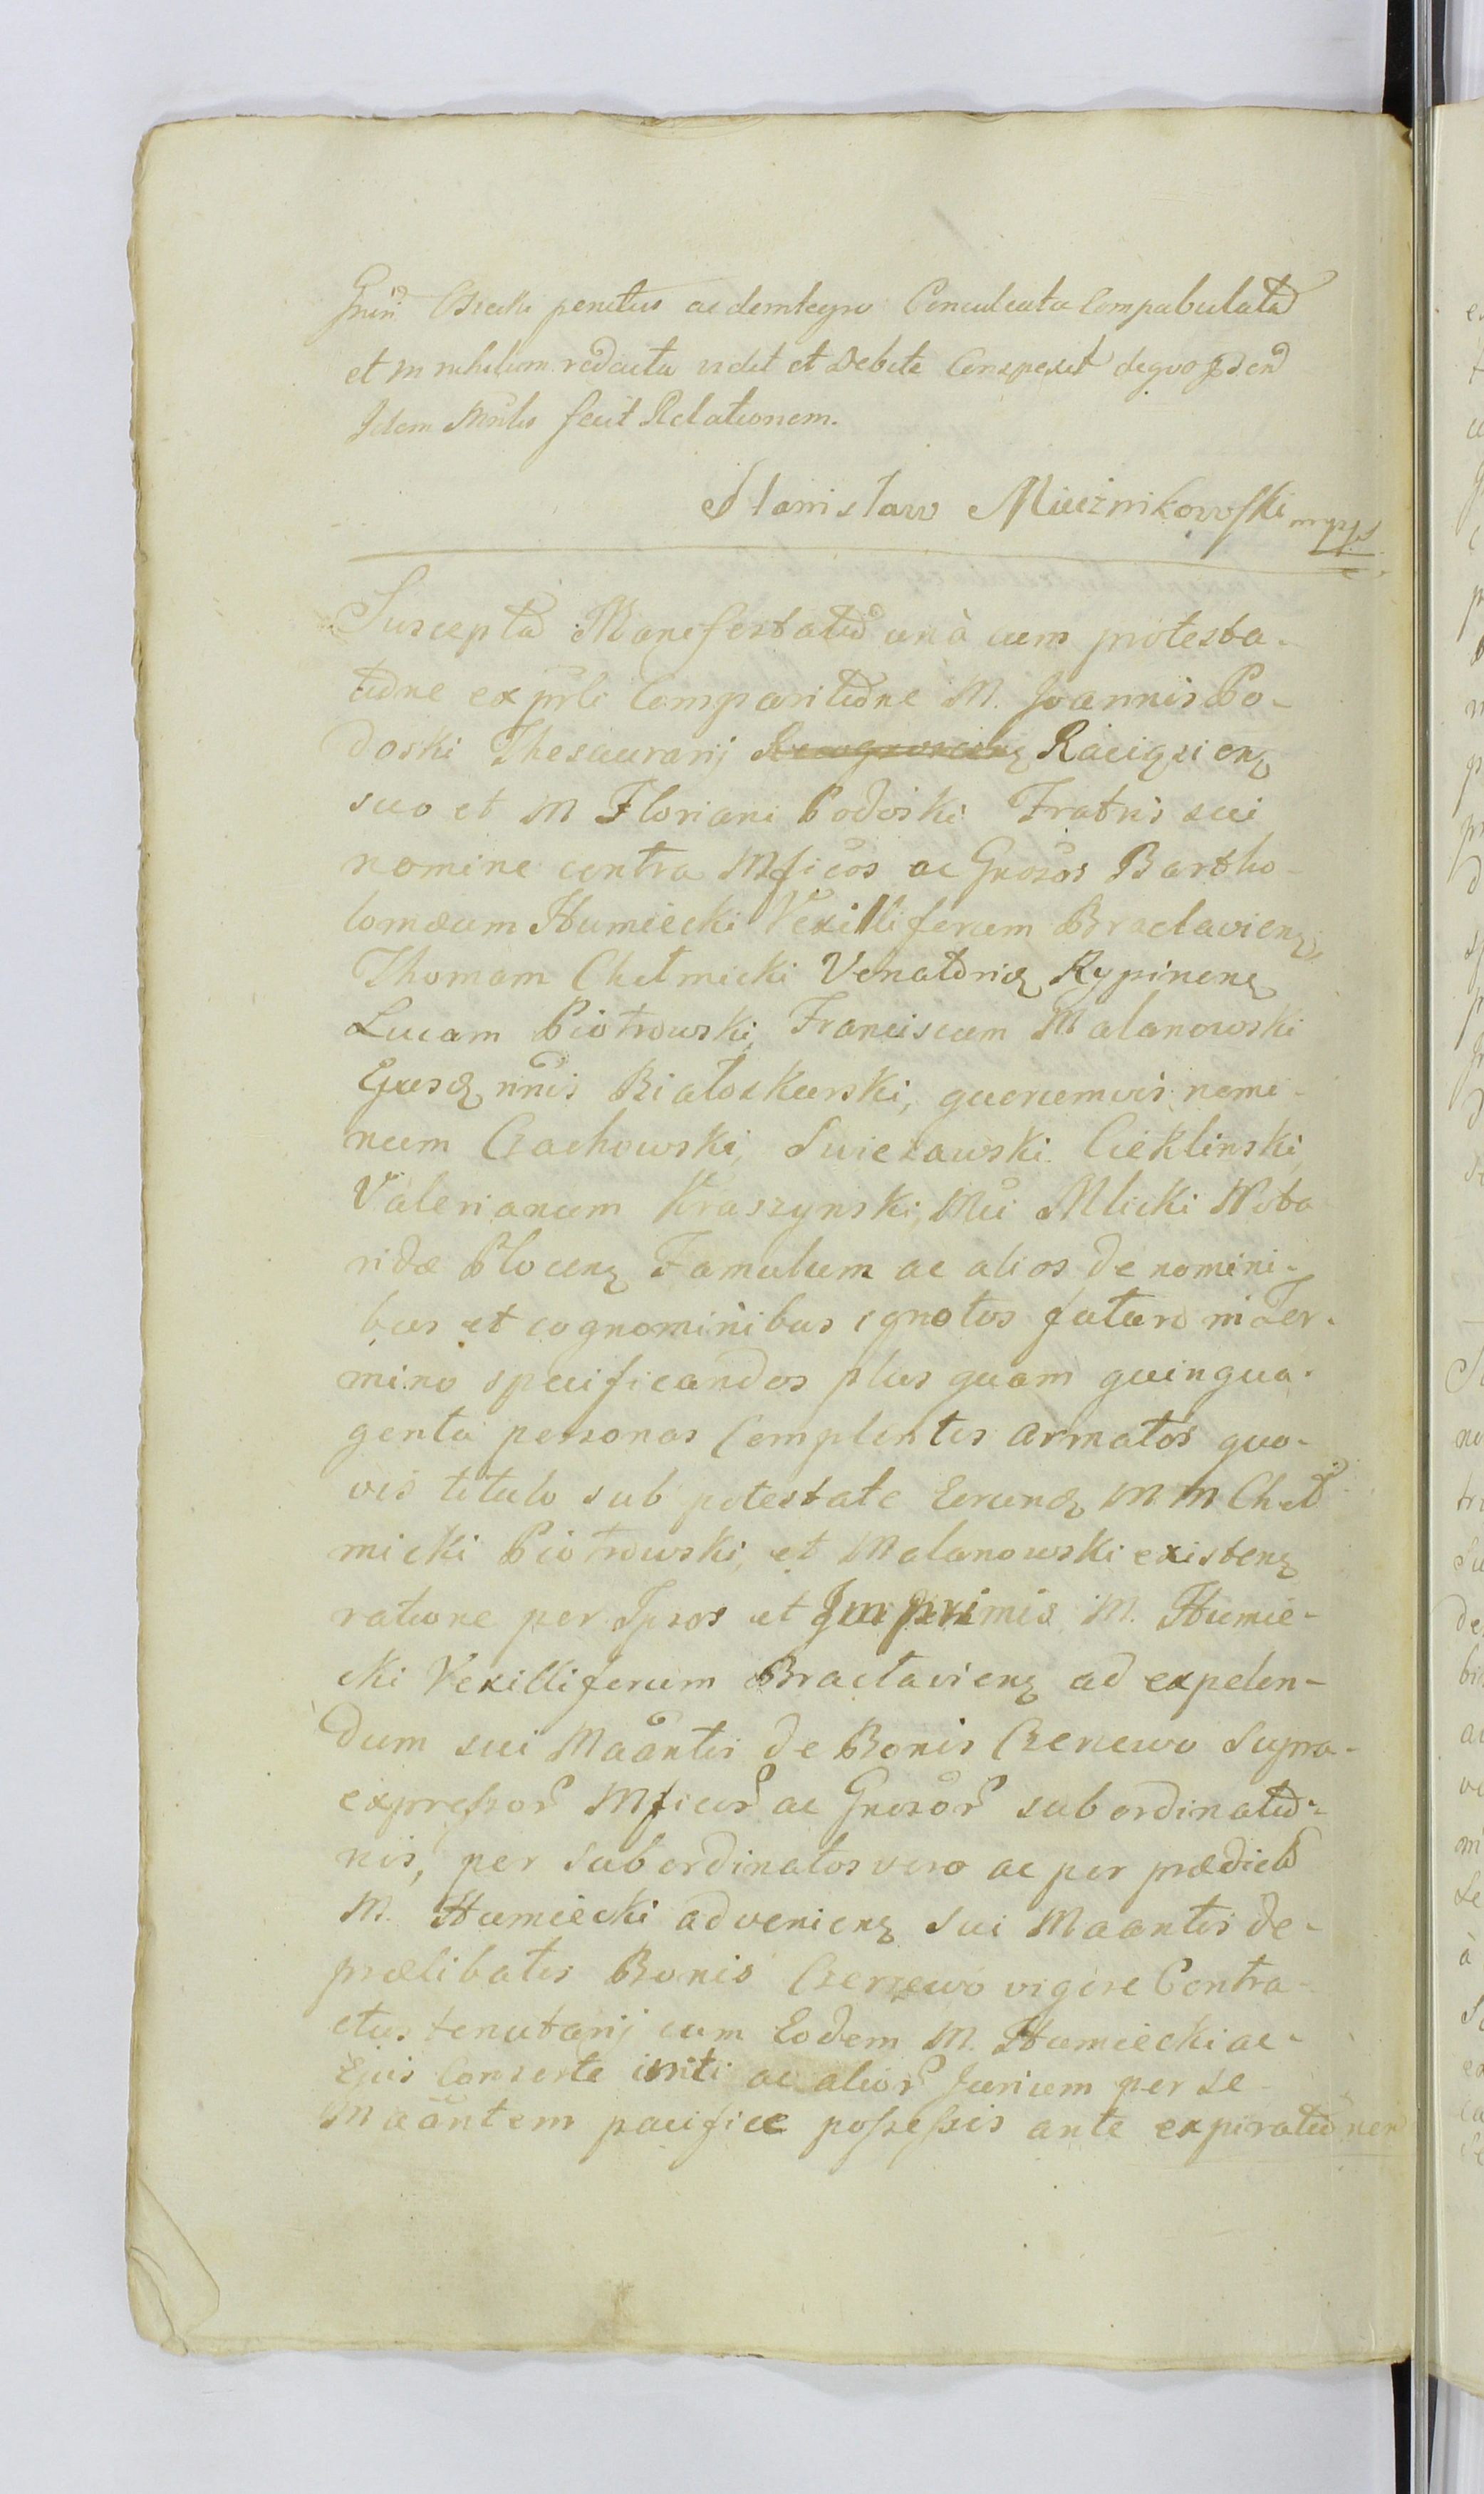 penitus ac deintegro Conculcata Compabulata
et in nihilum redacta vidit et Debite Conspexit dequo
Idem fecit Relationem.
Stanisław Mieeznikowski mpp
Suscepta Manifestatio unà cum protesta-
tione ex prli Comparitione M. Joannis Po-
doski Thesaurarij Raciąziens
suo et M Floriani Podoski Fratris sui
nomine contra Mficos ac Gnosos Bartho-
lomæum Humiecki Vexilliferum Braclaviens,
Thomam Chełmicki Venatorid Rypinens
Lucam Piotrowski, Franciscum Malanowski
Ejusd nnis Białoskurski, quorumvis nomi-
num Czachowski, Swiezawski Cieklinski,
Valerianum Kraszynski, Mci Mlicki Nota
rid Plocens Famulum ac alios de nomini-
bus et cognominibus ignotos futuro in Ter-
mino specificandos plus quam quinqua-
genta personas Complentes armatos quo-
vis titulo sub potestate Eorund M M Cheł
micki Piotrowski, et Malanowski existens
ratione per Ipsos et Imprimis M. Humie-
cki Vexilliferum Braclaviens ad expelen-
dum sui Maantis de Bonis Czerzewo Supra-
expressor Mficor ac Gnosor subordinatio-
nis, per subordinatos vero ac per prædictũ
M. Humiecki adveniens sui Maantis de-
prælibatis Bonis Czerzewo vigore Contra-
ctus tenutarij cum Eodem M. Humiecki ac-
Ejus Consorte initi ac alior Jurium per se
Maantem pacifice possessis ante expirationem